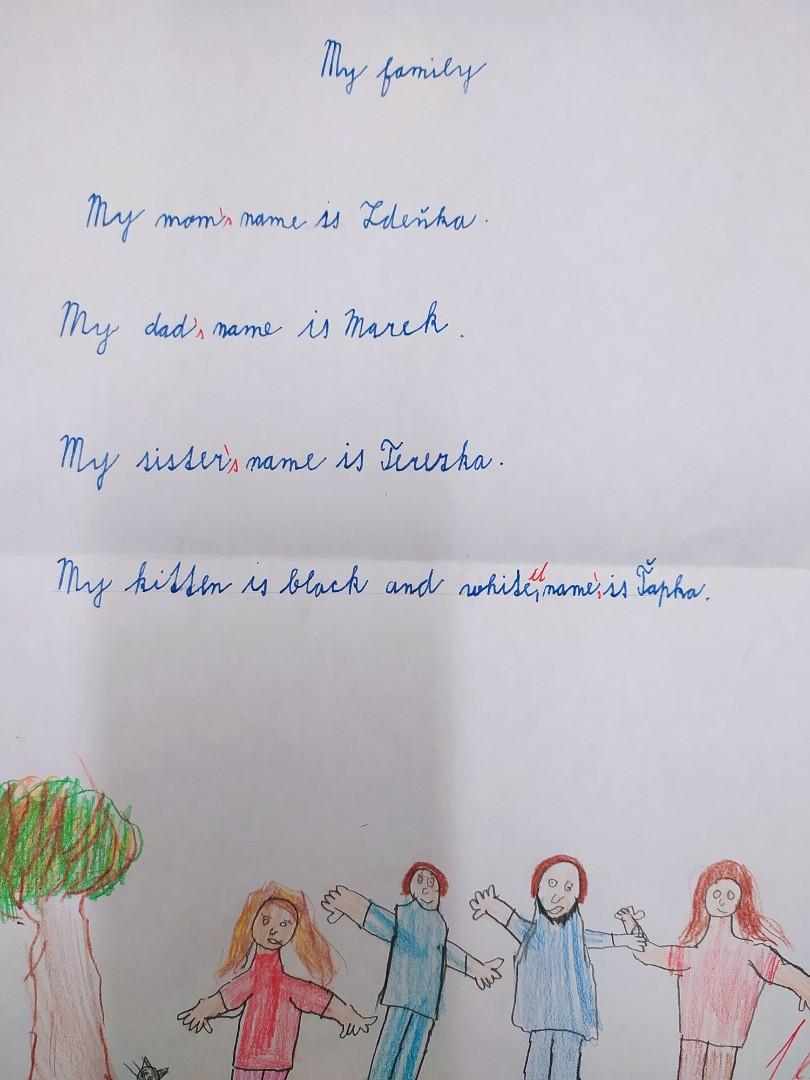 My family
My mom's name is Zdeňka.
My dad's name is Marek.
My sister's name is Terezka.
My kitten is black and white, name is Ťapka.